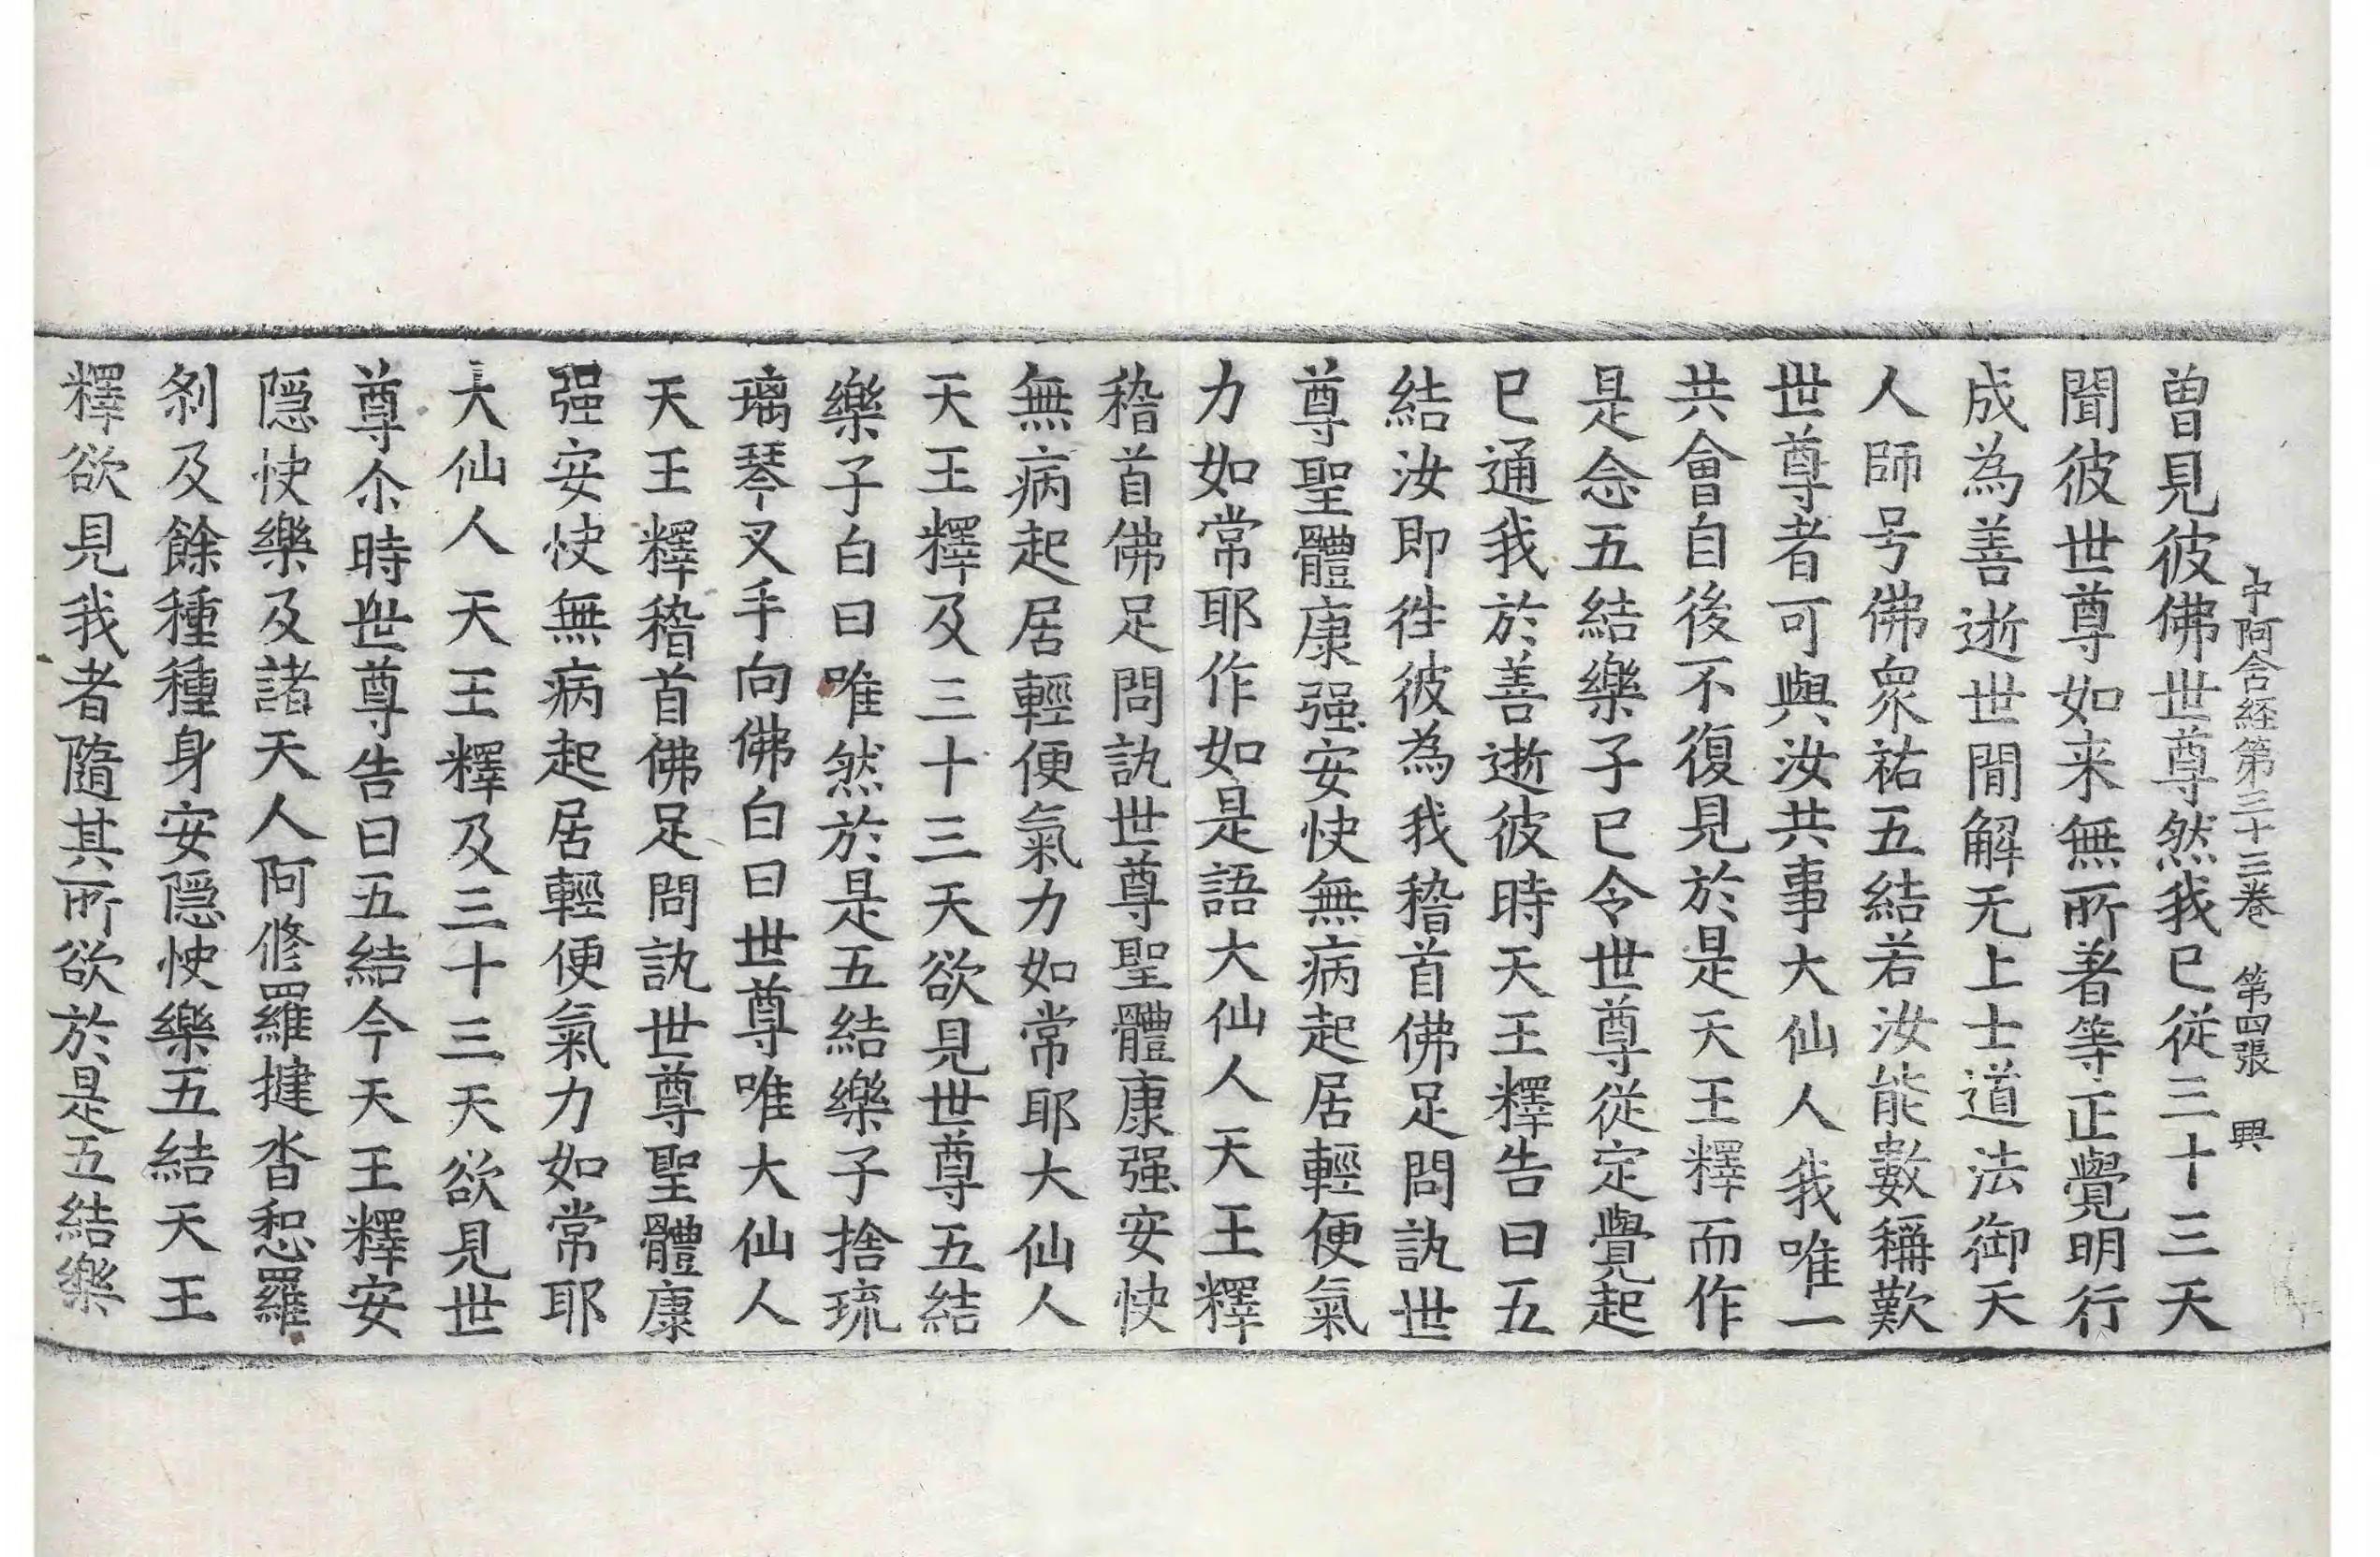 中阿含経第三十三巻　第四張　興
曽見彼佛世尊然我已從三十三天
聞彼世尊如来無所著等正覺明行
成為善逝世間解无上士道法御天
人師号佛衆祐五結若汝能數稱歎
世尊者可與汝共事大仙人我唯一
共會自後不復見於是天王釋而作
是念五結樂子已令世尊從定覺起
已通我於善逝彼時天王釋告曰五
結汝即徃彼為我稽首佛足問訊世
尊聖體康强安快無病起居輕便氣
力如常耶作如是語大仙人天王釋
稽首佛足問訊世尊聖體康强安快
無病起居輕便氣力如常耶大仙人
天王釋及三十三天欲見世尊五結
樂子白曰唯然於是五結樂子捨琉
璃琴叉手向佛白曰世尊唯大仙人
天王釋稽首佛足問訊世尊聖體康
强安快無病起居輕便氣力如常耶
大仙人天王釋及三十三天欲見世
尊尒時世尊告曰五結今天王釋安
隠快樂及諸天人阿修羅揵沓惒羅
剎及餘種種身安隠快樂五結天王
釋欲見我者隨其所欲於是五結樂